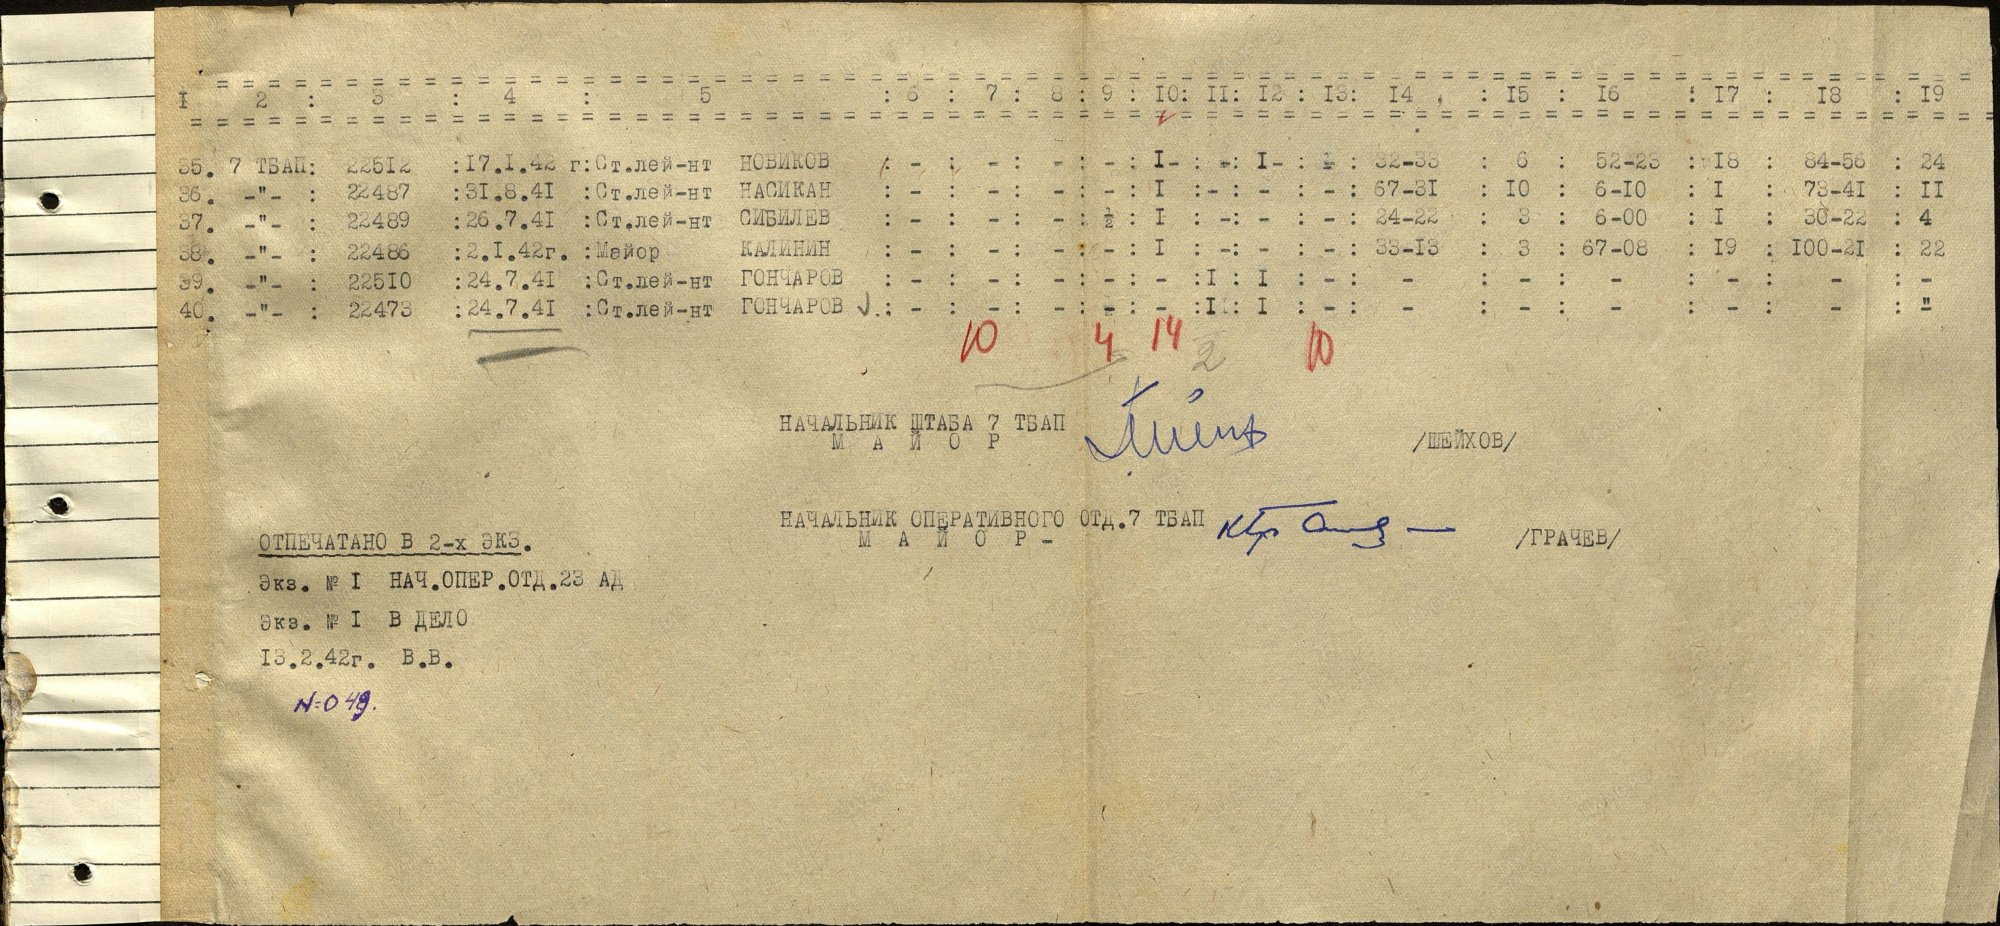 I 2 : 3 : 4 : 5 : 6 : 7 : 8 : 9 : IO: II: I2 : I3: I4 : I5 : I6 : I7 : I8 : I9
35. 7 ТБАП: 22512 :I7.I.42 г:Ст.лей-нт НОВИКОВ : - : - : - : - : I- : - : I- : I : 32-33 : 6 : 52-23 : I8 : 84-56 : 24
36. -"- : 22487 :3I.8.4I :Ст.лей-нт НАСИКАН : - : - : - : - : I : - : - : - : 67-3I : IO : 6-IO : I : 73-4I : II
37. -"- : 22489 :26.7.4I :Ст.лей-нт СИБИЛЕВ : - : - : - : ½ : I : - : - : - : 24-22 : 3 : 6-00 : I : 30-22 : 4
38. -"- : 22486 :2.I.42г. :Майор КАЛИНИН : - : - : - : - : I : - : - : - : 33-I3 : 3 : 67-08 : I9 : IOO-2I : 22
39. -"- : 225IO :24.7.4I :Ст.лей-нт ГОНЧАРОВ : - : - : - : - : - : I : I : - : - : - : - : - : - : -
40. -"- : 22473 :24.7.4I :Ст.лей-нт ГОНЧАРОВ : - : - : - : - : - : I : I : - : - : - : - : - : - : "
10 4 14 2 10
НАЧАЛЬНИК ШТАБА 7 ТБАП
М А Й О Р /ШЕЙХОВ/
НАЧАЛЬНИК ОПЕРАТИВНОГО ОТД.7 ТБАП
М А Й О Р - /ГРАЧЕВ/
ОТПЕЧАТАНО В 2-х ЭКЗ.
Экз. № I НАЧ.ОПЕР.ОТД.23 АД
Экз. № I В ДЕЛО
I3.2.42г. В.В.
N=049.